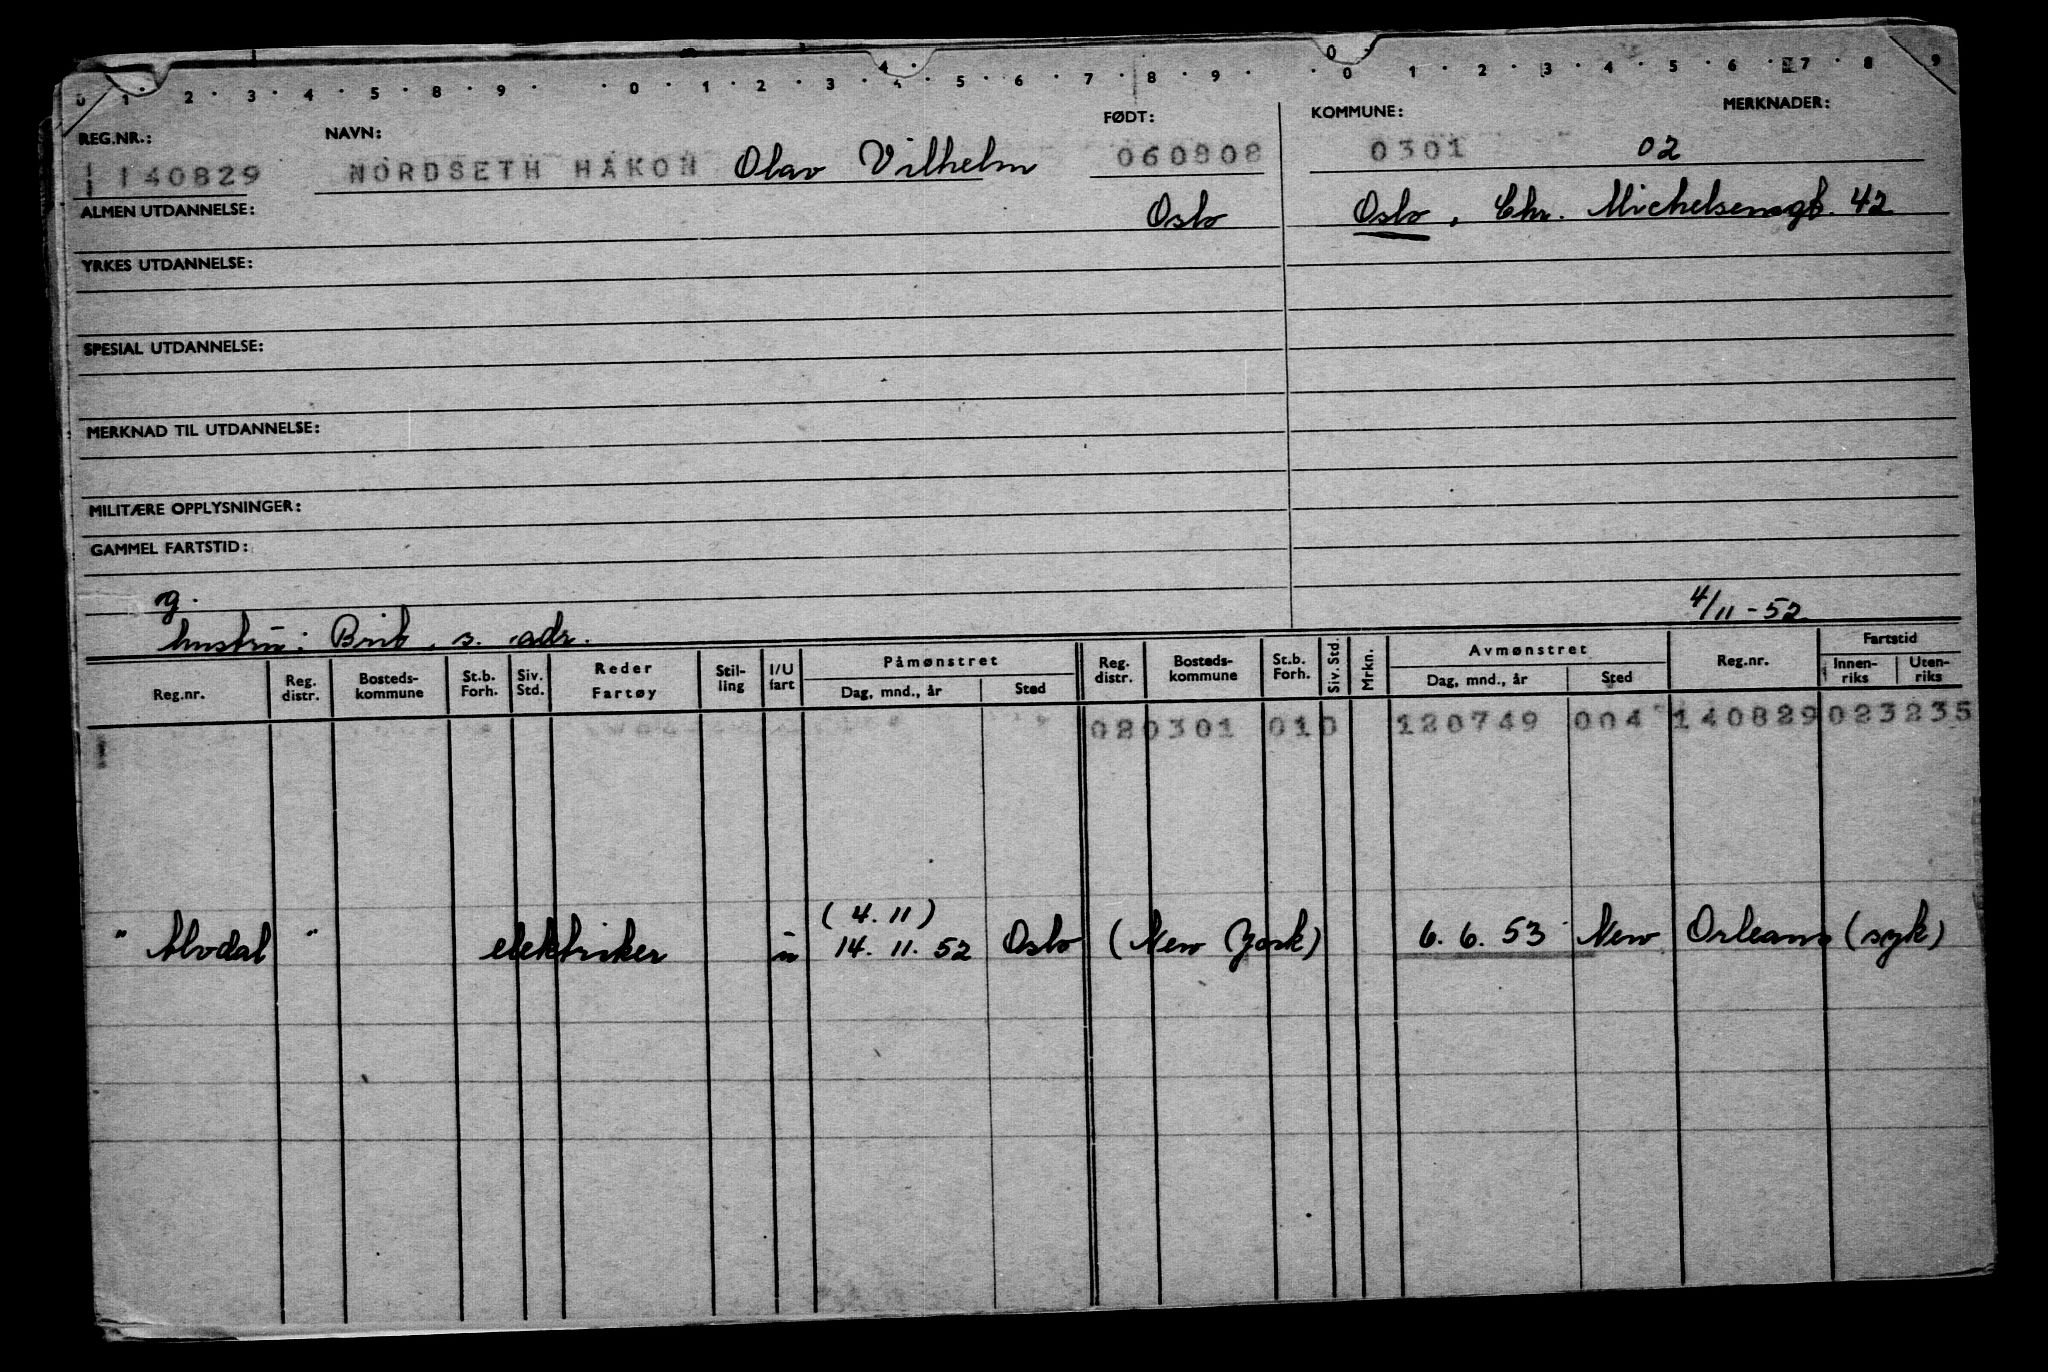 0 1 · 2 · 3 · 4 · 5 · 8 · 9 · · 0 · 1 · 2 · 3 · 4 · 5 · 6 · 7 · 8 · 9 · · 0 · 1 · 2 · 3 · 4 · 5 · 6 · 7 · 8 · 9
REG.NR.: NAVN: FØDT: KOMMUNE: MERKNADER:
140829 NORDSETH HAKON Olav Vilhelm 060808 0301 02
ALMEN UTDANNELSE: Oslo Oslo, Chr. Michelsensgt. 42
YRKES UTDANNELSE:
SPESIAL UTDANNELSE:
MERKNAD TIL UTDANNELSE:
MILITÆRE OPPLYSNINGER:
GAMMEL FARTSTID:
g. 4/11-52
hustru: Brit, s. adr.
Reg.nr. Reg. distr. Bosteds-kommune St.b. Forh. Siv. Std. Reder Fartøy Stil-ling I/U fart Påmønstret Dag, mnd., år Sted Reg. distr. Bosteds-kommune St.b. Forh. Siv. Std. Mrkn. Avmønstret Dag, mnd., år Sted Reg.nr. Fartstid Innen-riks Uten-riks
020301 010 120749 004 140829 023235
(4.11)
" Alvdal " elektriker u 14.11.52 Oslo (New York) 6.6.53 New Orleans (syk)